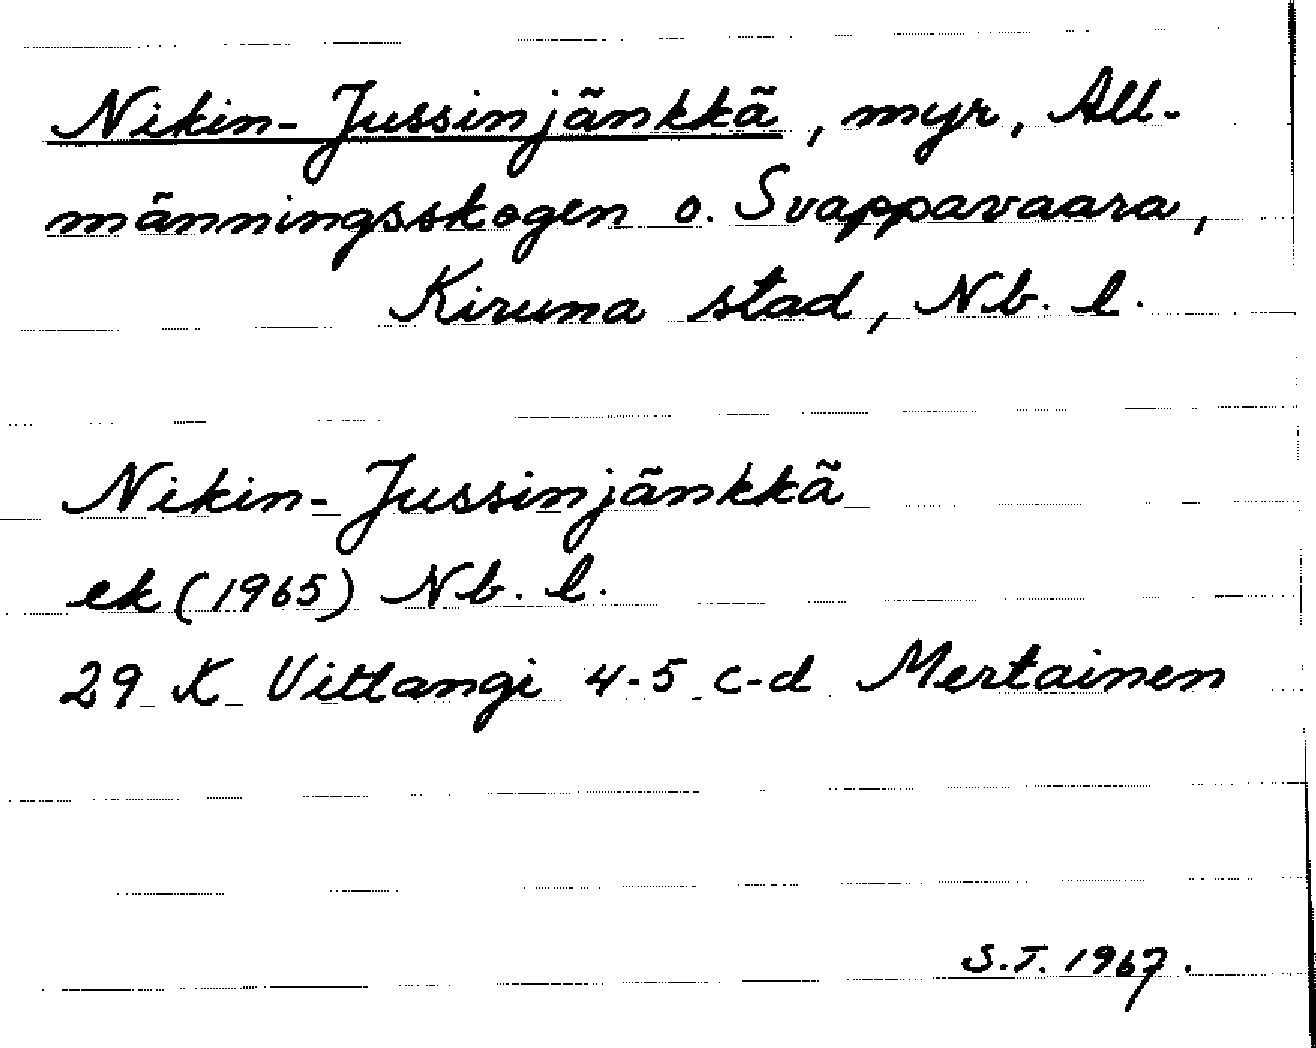 Nikin-Jussinjänkkä, myr, All-
männingsskogen o. Svappavaara,
Kiruna stad, Nb. l.
Nikin-Jussinjänkkä
ek (1965) Nb. l.
29 K Vittangi 4-5 c-d Mertainen
S.T. 1967.